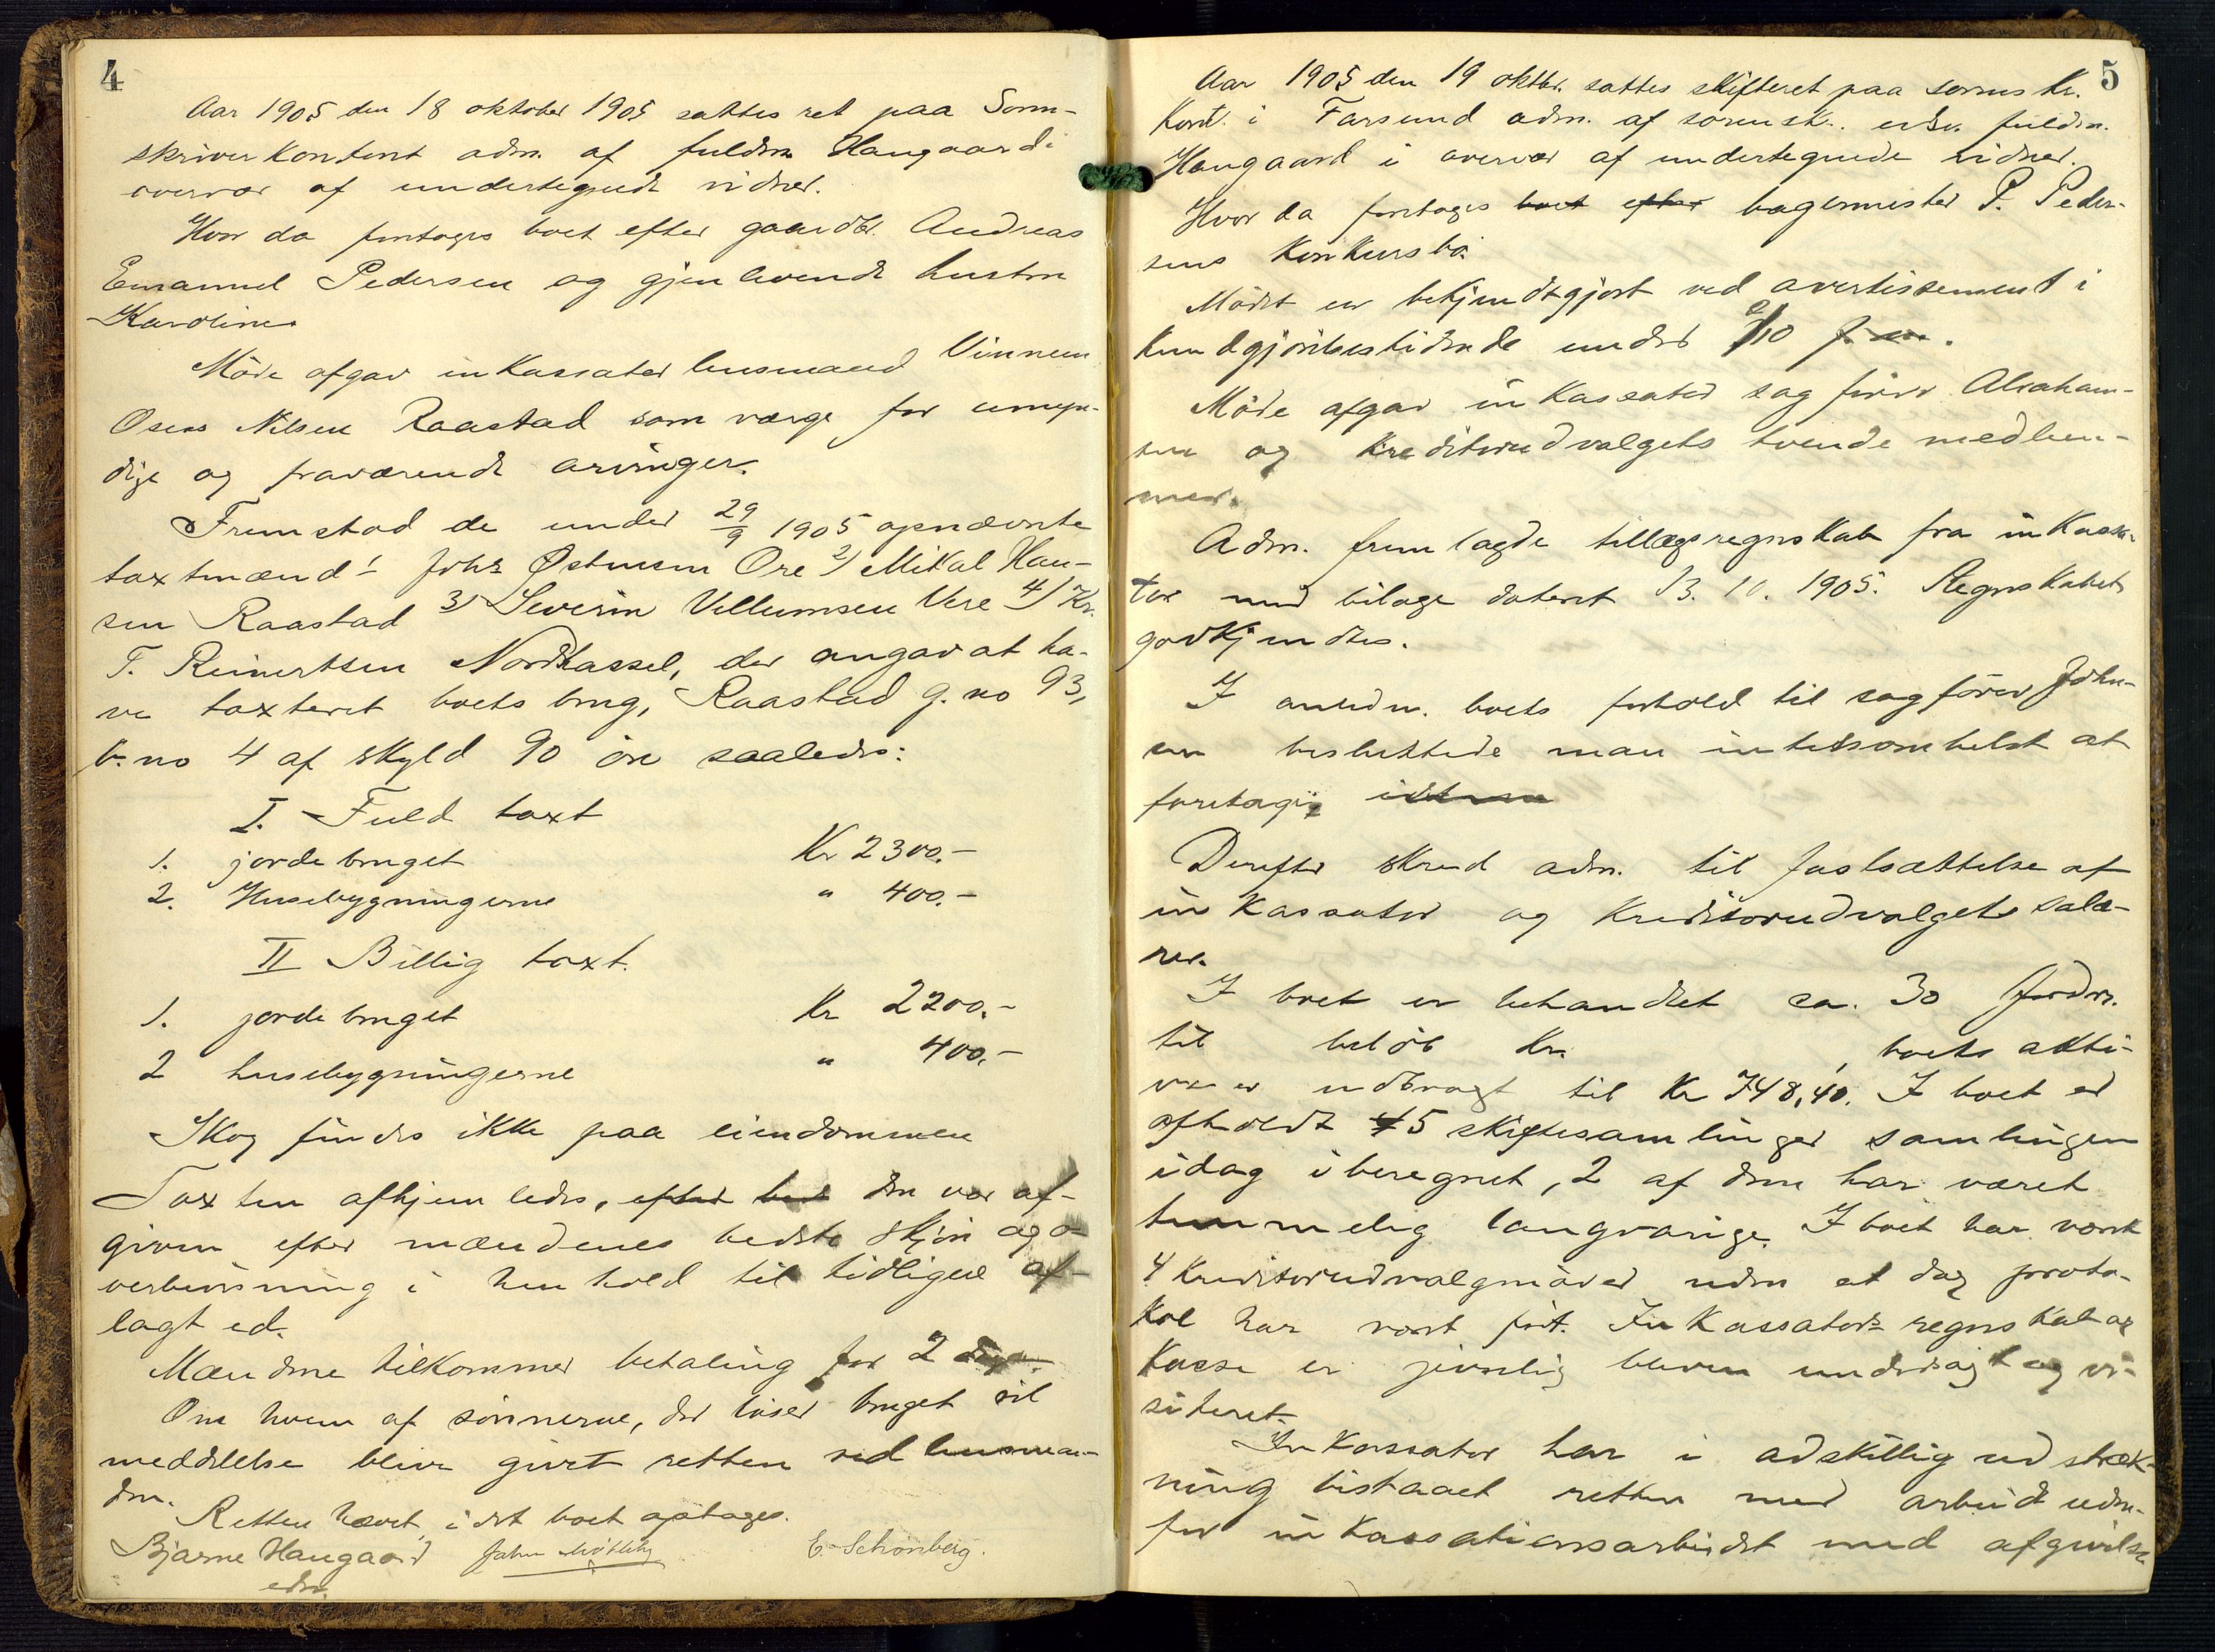 4
Aar 1905 den 18 oktober 1905 sattes ret paa Soren-
skriverkontoret adm. af fuldm. Haugaard i
overvær af undertegnede vidner.
Hvor da foretoges boet efter gaardbr. Andreas
Emanuel Pedersen og gjenlevende hustru
Karoline.
Møde afgav inkassator lensmand Vinnem
Oseas Nilsen Raastad som værge for umyn-
dige og fraværende arvinger.
Fremstod de under 29/9 1905 opnævnte
taxtmænd 1 Johs Østensen Ore 2) Mikal Han-
sen Raastad 3) Severin Villumsen Vere 4) Kr.
T. Reinertsen Nordhassel, der angav at ha-
ve taxteret boets brug, Raastad g. no 93,
b. no 4 af skyld 90 øre saaledes:
I. Fuld taxt
1. jordebruget Kr 2300.-
2. Husebygningerne " 400.-
II Billig taxt.
1. jordebruget Kr 2200.-
2 husebygningerne " 400.-
Skog findes ikke paa eiendommen
Taxten afhjemledes, efter bed den var af-
given efter mændenes bedste skjøn og o-
verbevisning i henhold til tidligere af-
lagt ed.
Mændene tilkommer betaling for 2 dage.
Om hvem af sønnerne, der løser bruget vil
meddelelse blive givet retten ved lensman-
den.
Retten hævet, idet boet optages.
Bjarne Haugaard E. Schönberg.
edsv.
5
Aar 1905 den 19 oktbr. sattes skifteret paa sorenskr.
kont. i Farsund adm. af sorensk. edsv. fuldm.
Haugaard i overvær af undertegnede vidner.
Hvor da foretoges boet efter bagermester P. Peder-
sens konkursbo.
Mødet er bekjendtgjort ved avertissement i
Kundgjørelsestidende under 2/10
Møde afgav inkassator sagfører Abraham-
sen og kreditorudvalgets tvende medlem-
mer.
Adm. fremlagde tillægsregnskab fra inkassa-
tor med bilage dateret 13. 10. 1905. Regnskabet
godkjendtes.
I anledn. boets forhold til sagfører John-
sen besluttede man intetsomhelst at
foretage
Derefter skred adm. til fastsættelse af
inkassator og kreditorudvalgets salæ-
rer.
I boet er behandlet ca. 30 fordr.
til beløb Kr. , boets akti-
va er udbragt til Kr 748,40. I boet er
afholdt 5 skiftesamlinger samlingen
idag iberegnet, 2 af dem har været
temmelig langvarige. I boet har været
4 kreditorudvalgmøder uden at dog proto-
kol har været ført. Inkassators regnskab og
kasse er jevnlig bleven undersøgt og vi-
siteret.
Inkassator har i adskillig udstræk-
ning bistaaet retten med arbeide uden-
for inkassationsarbeidet med afgivelse